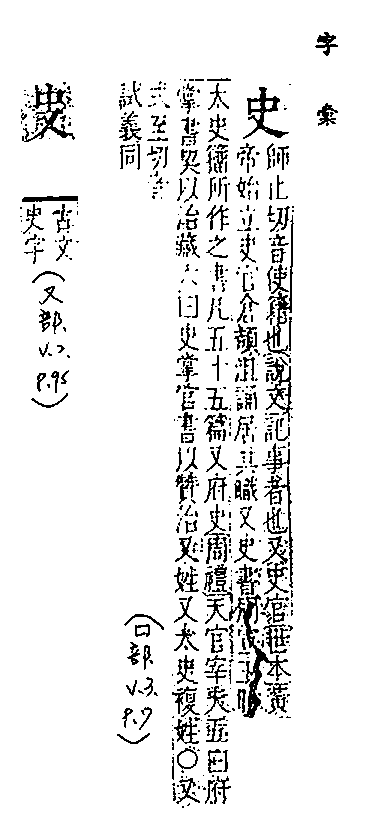 字彙
史
師止切音使籍也說文記事者也又史官世本黃
帝始立史官倉頡沮誦居其職又史書周宣王時
太史籀所作之書凡五十五篇又府史周禮天官宰夫五曰府
掌書契以治藏六曰史掌官書以贊治又姓又太史複姓○又
式至切音
試義同
(口部.
v.3.
p.7)
古文
史字
(又部.
v.2.
p.95)